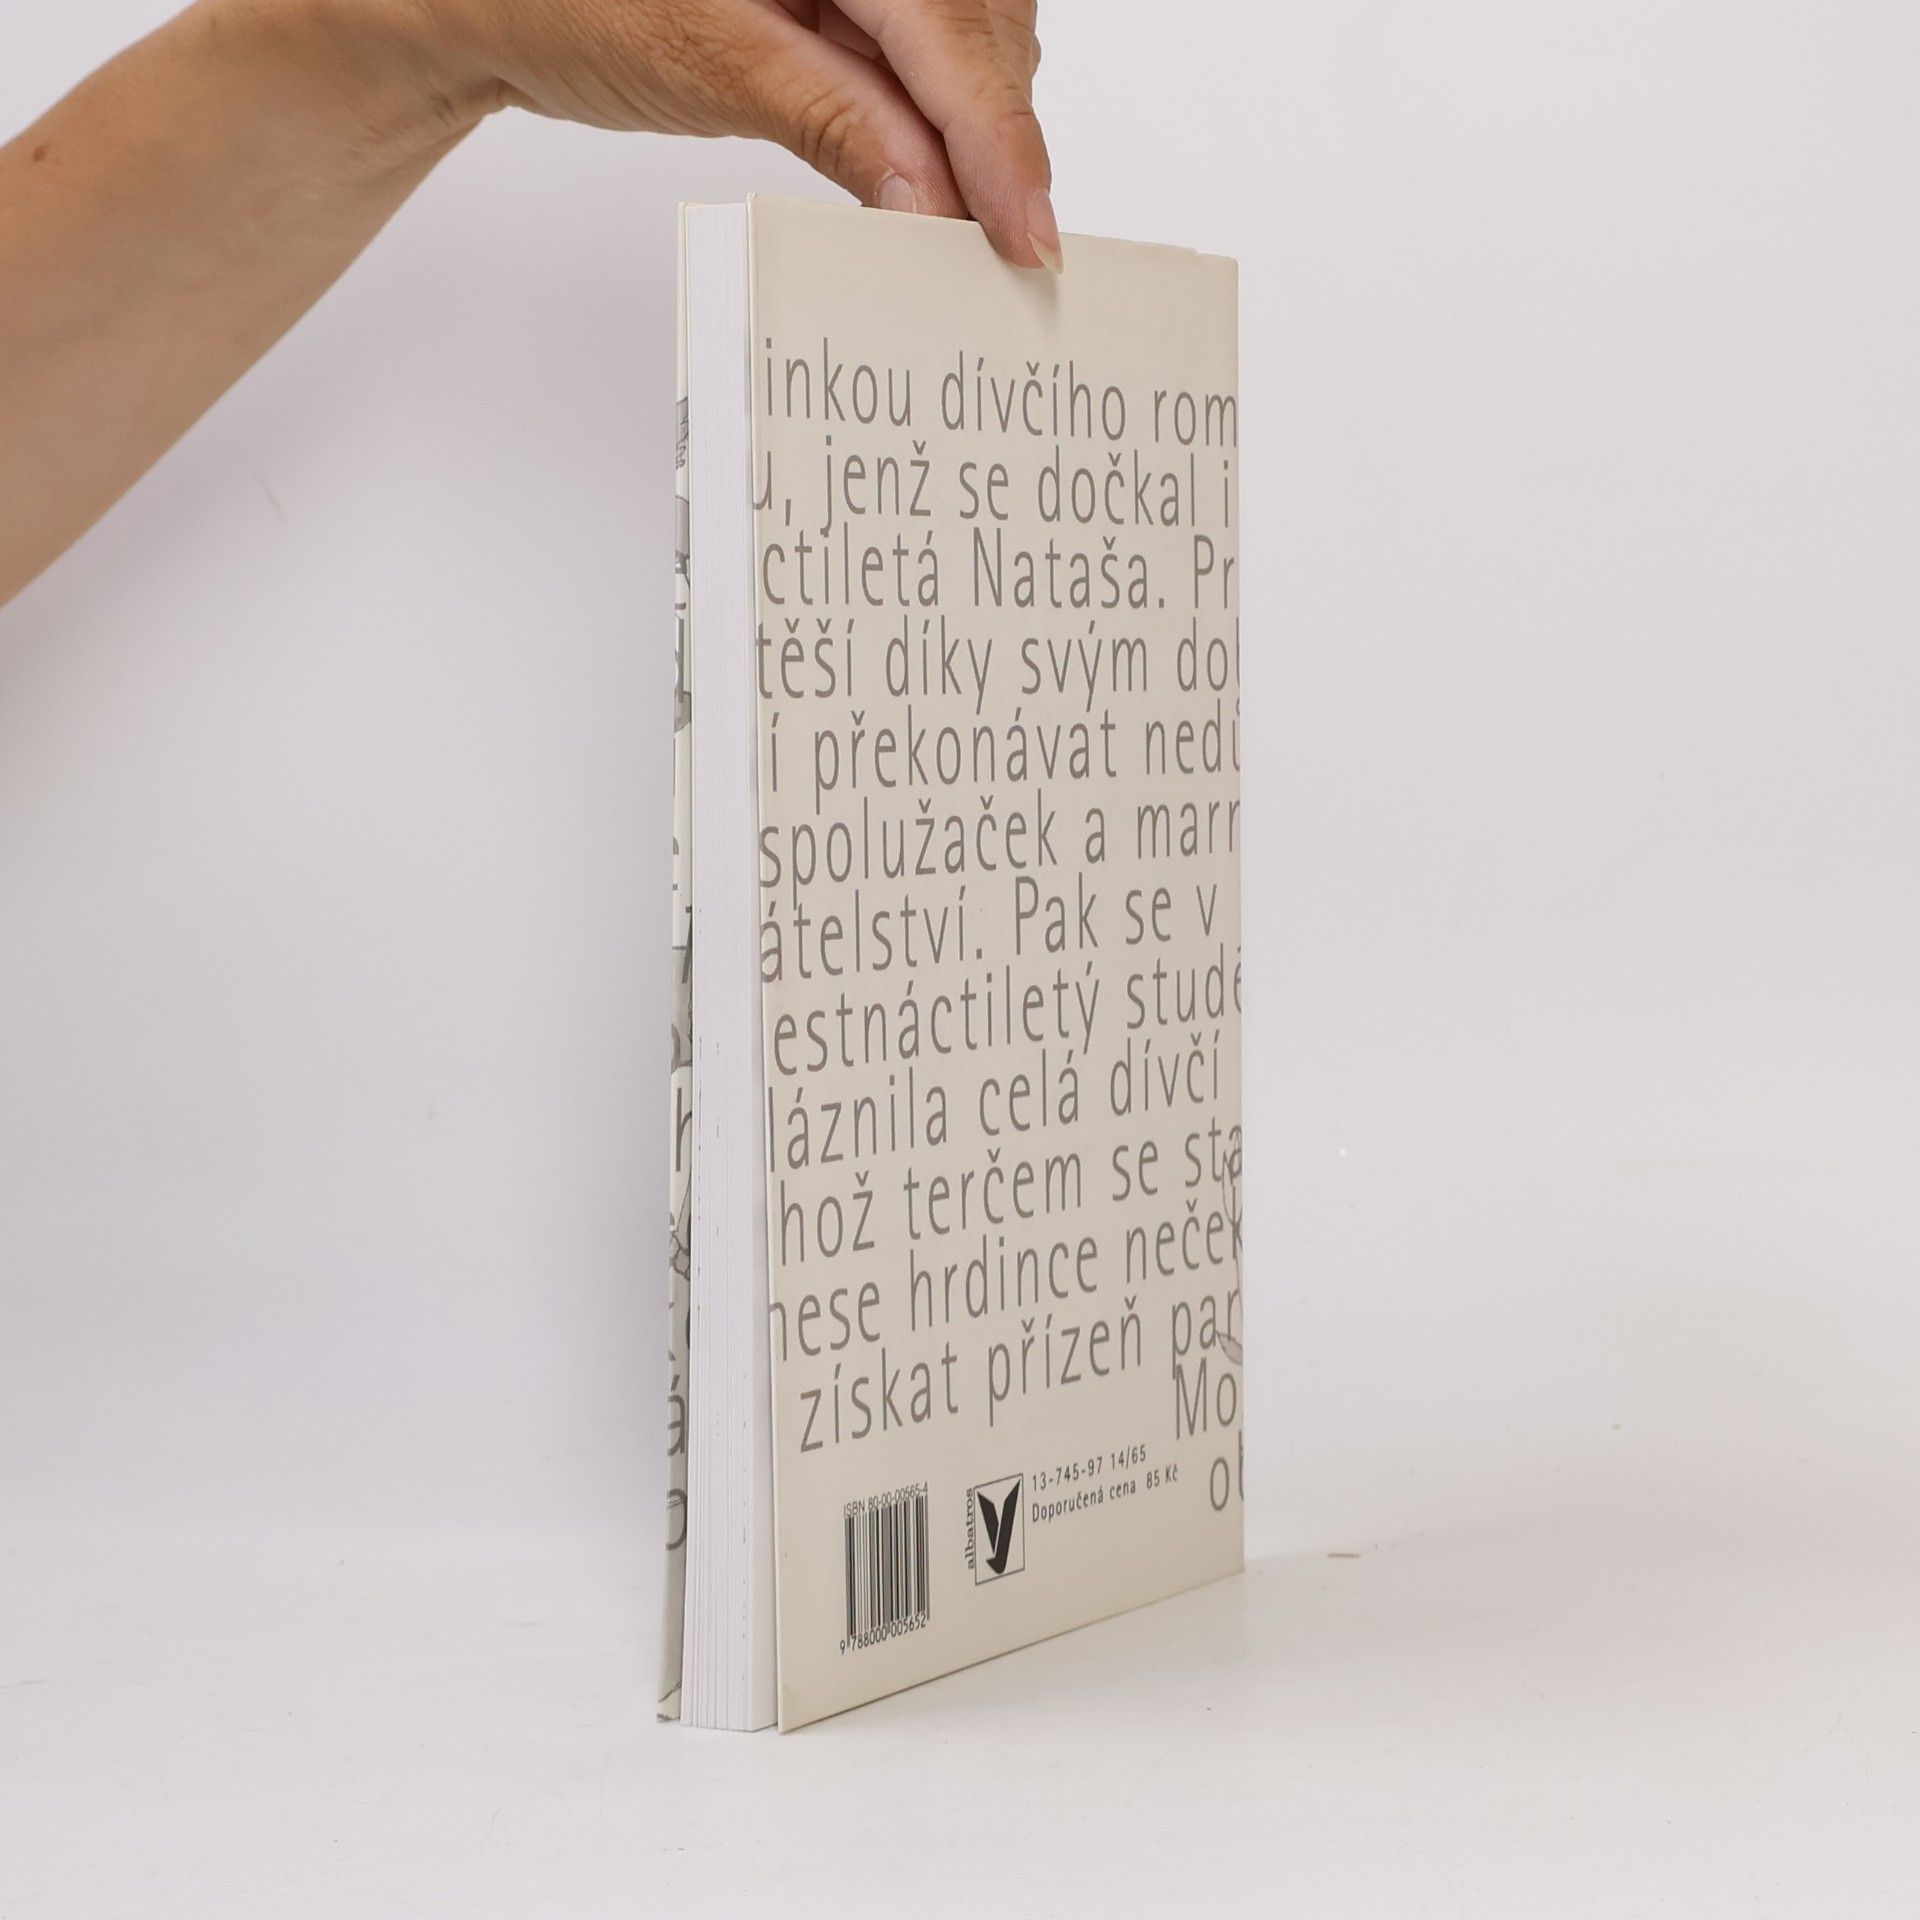 inkou dívčího rom
u, jenž se dočkal i
ctiletá Nataša. Pr
těší díky svým dob
í překonávat nedů
spolužaček a marn
átelství. Pak se v
estnáctiletý stude
láznila celá dívčí
hož terčem se sta
nese hrdince neček
získat přízeň par
Mo
ob
13-745-97 14/65
Doporučená cena 85 Kč
albatros
ISBN 80-00-00565-4
9 788000 005652